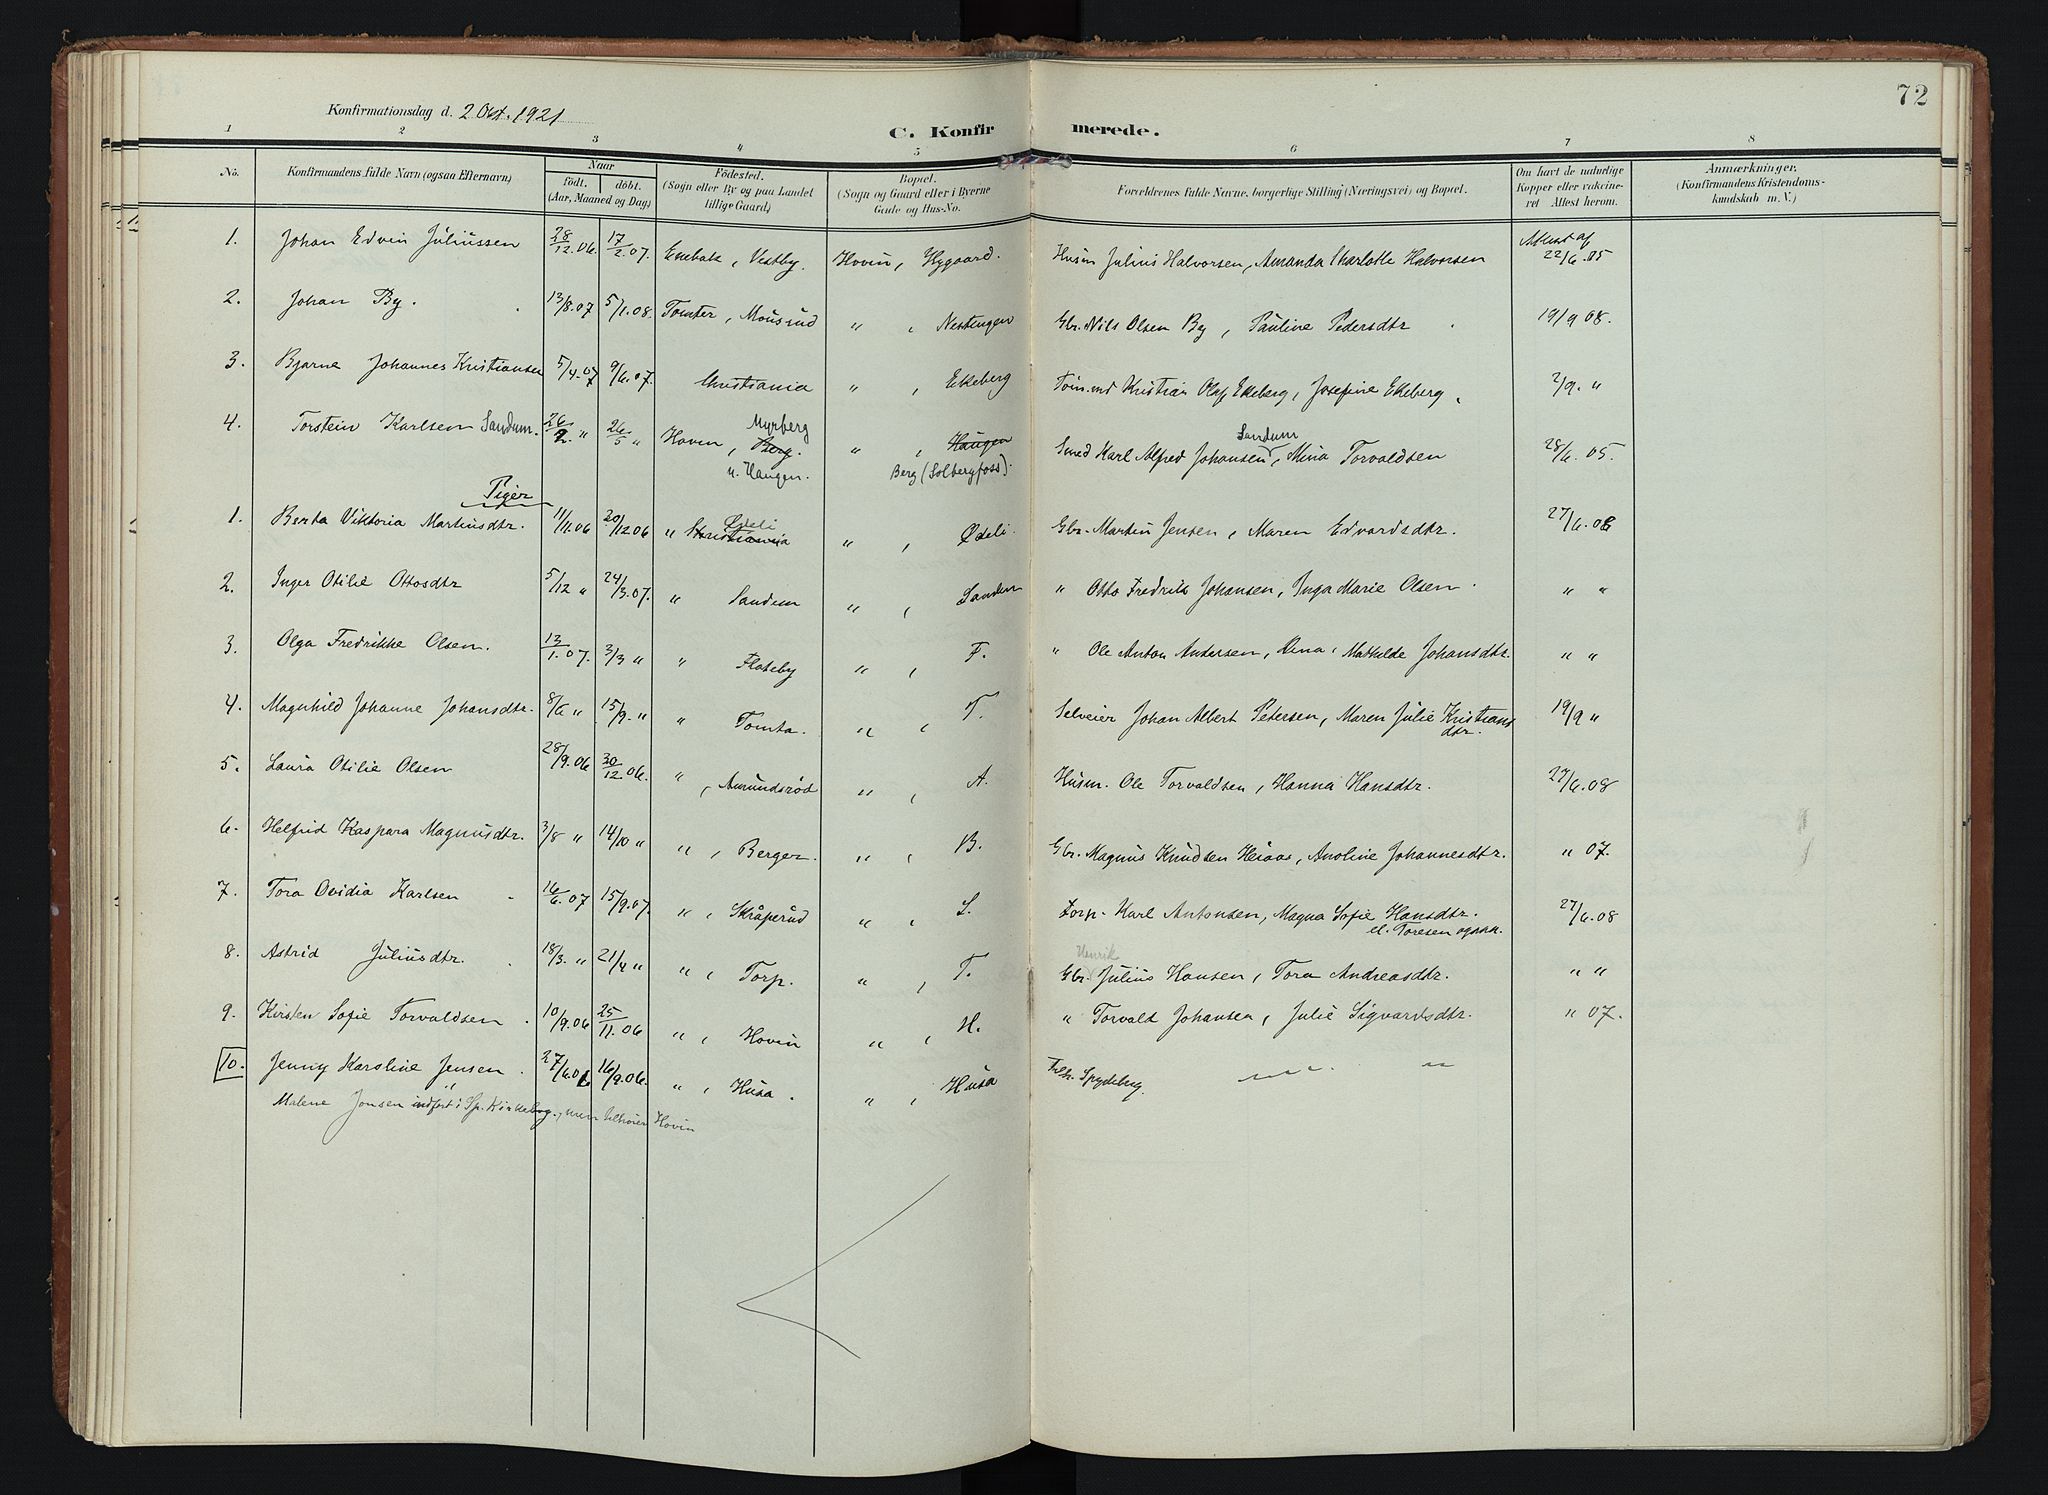 72
Konfirmationsdag d. 2 Okt. 1921
C. Konfirmerede.
1 2 3 4 5 6 7 8
No. Konfirmandens fulde Navn (ogsaa Efternavn) Naar födt. döbt. (Aar, Maaned og Dag) Födested. (Sogn eller By og paa Landet tillige Gaard) Bopæl. (Sogn og Gaard eller i Byerne Gade og Hus-No. Forældrenes fulde Navne, borgerlige Stilling (Næringsvei) og Bopæl. Om havt de naturlige Kopper eller vaccineret Attest herom. Anmærkninger. (Konfirmandens Kristendomskundskab m. V.)
1. Johan Edvin Juliussen 28/12.06 17/2.07. Enebak, Vestby. Hovin, Hygaard. Husm Julius Halvorsen, Amanda Charlotte Halvorsen Attest af 22/6.05
2. Johan By. 13/8.07 5/1.08. Tomter, Mousrud " , Nestengen Gbr. Nils Olsen By, Pauline Pedersdtr 19/9 08.
3. Bjarne Johannes Kristiansen 5/4.07 9/6.07. Christiania " , Ekeberg Töm.md Kristian Olaf Ekeberg, Josefine Ekeberg, 2/9. "
4. Torstein Karlsen Sandum. 26/2. " 26/5 " Hovin, Berg. Myrberg u. Haugen. " , Haugen Berg (Solbergfoss). Smed Karl Alfred Johansen Sandum, Mina Torvaldsen 28/6.05.
Piger
1. Berta Viktoria Martinsdtr. 11/11.06 20/12.06 " Christiania Ødeli " , Ødeli. Gbr. Martin Jensen, Maren Edvardsdtr. 27/6.06
2. Inger Otilie Ottosdtr 5/12 " 24/3.07. " Sandum " , Sandum " Otto Fredrik Johansen, Inga Marie Olsen " "
3. Olga Fredrikke Olsen. 13/1.07. 3/3 " " Flateby " , F. " Ole Anton Andersen, Mathilde Johansdtr. " "
4. Magnhild Johanne Johansdtr. 8/6 " 15/9. " " Tomta. " , T. Selveier Johan Albert Petersen, Maren Julie Kristiansdtr. 19/9 "
5. Laura Otilie Olsen 28/9.06 30/12.06. " , Amundsrød " , A. Husm. Ole Torvaldsen, Hanna Hansdtr. 27/6.08
6. Helfrid Kaspara Magnusdtr. 3/8 " 14/10 " " , Berger. " , B. Gbr. Magnus Knudsen Heiaas, Anoline Johannesdtr. " 07.
7. Tora Ovidia Karlsen 16/6.07 15/9.07. " , Skråperud " , S. Torp. Karl Antonsen, Magna Sofie Hansdtr. el. Toresen ogsaa. 27/6.08
8. Astrid Juliusdtr. 18/3. " 21/4 " " , Torp. " , T. Gbr. Henrik Julius Hansen, Tora Andreasdtr. " "
9. Kirsten Sofie Torvaldsen 10/9.06 25/11.06 " , Hovin " , H. " Torvald Johansen, Julie Sigvardsdtr. " 07.
10. Jenny Karoline Jensen 27/6.06 16/9.06. " , Husa. " , Husa Tilh. Spydeberg.
Malene Jensen indført i Sp. Kirkebog, men tilhører Hovin